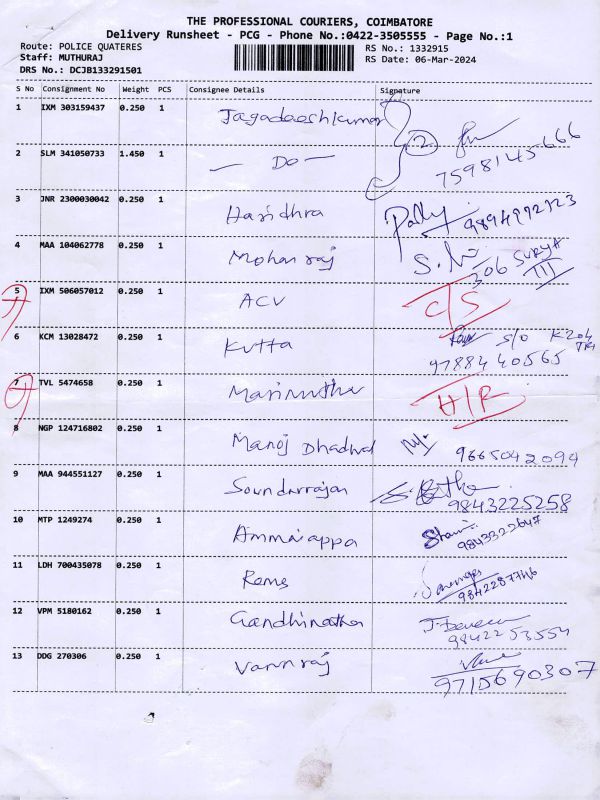 THE PROFESSIONAL COURIERS, COIMBATORE
Delivery Runsheet - PCG - Phone No.:0422-3505555 - Page No.:1
Route: POLICE QUATERES RS No.: 1332915
Staff: MUTHURAJ RS Date: 06-Mar-2024
DRS No.: DCJB133291501
S No Consignment No Weight PCS Consignee Details Signature
1 IXM 303159437 0.250 1 Jagadaeshkumar 2
2 SLM 341050733 1.450 1 — Do — 7598145666
3 JNR 2300030042 0.250 1 Haridhra 9894992923
4 MAA 104062778 0.250 1 Mohanraj 306 SURYA III
5 IXM 506057012 0.250 1 ACV C/S
6 KCM 13028472 0.250 1 Kutta S/O K204
9788440565
7 TVL 5474658 0.250 1 Marimuthu H/R
8 NGP 124716802 0.250 1 Manoj Dhadwal 9665042094
9 MAA 944551127 0.250 1 Soundarrajan 9843225258
10 MTP 1249274 0.250 1 Ammaiappa 9843322647
11 LDH 700435078 0.250 1 Rems 9842287746
12 VPM 5180162 0.250 1 Gandhinathan 9842253554
13 DDG 270306 0.250 1 Vannraj 9715690307